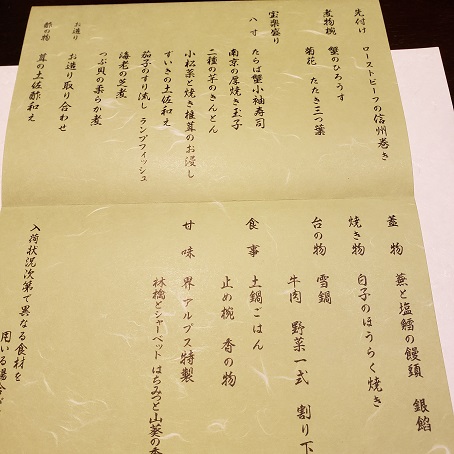 先付け ローストビーフの信州巻き
煮物椀 蟹のひろうす
菊花 たたき三つ葉
宝楽盛り
八寸 たらば蟹小袖寿司
南京の厚焼き玉子
二種の芋のきんとん
小松菜と焼き椎茸のお浸し
ずいきの土佐和え
茄子のすり流し ランプフィッシュ
海老の芝煮
つぶ貝の柔らか煮
お造り お造り取り合わせ
酢の物 茸の土佐酢和え
蓋物 蕪と塩鱈の饅頭 銀餡
焼き物 白子のほうらく焼き
台の物 雪鍋
牛肉 野菜一式 割り下
食事 土鍋ごはん
止め椀 香の物
甘味 界アルプス特製
林檎とシャーベット はちみつと山葵の香
入荷状況次第で異なる食材を
用いる場合が